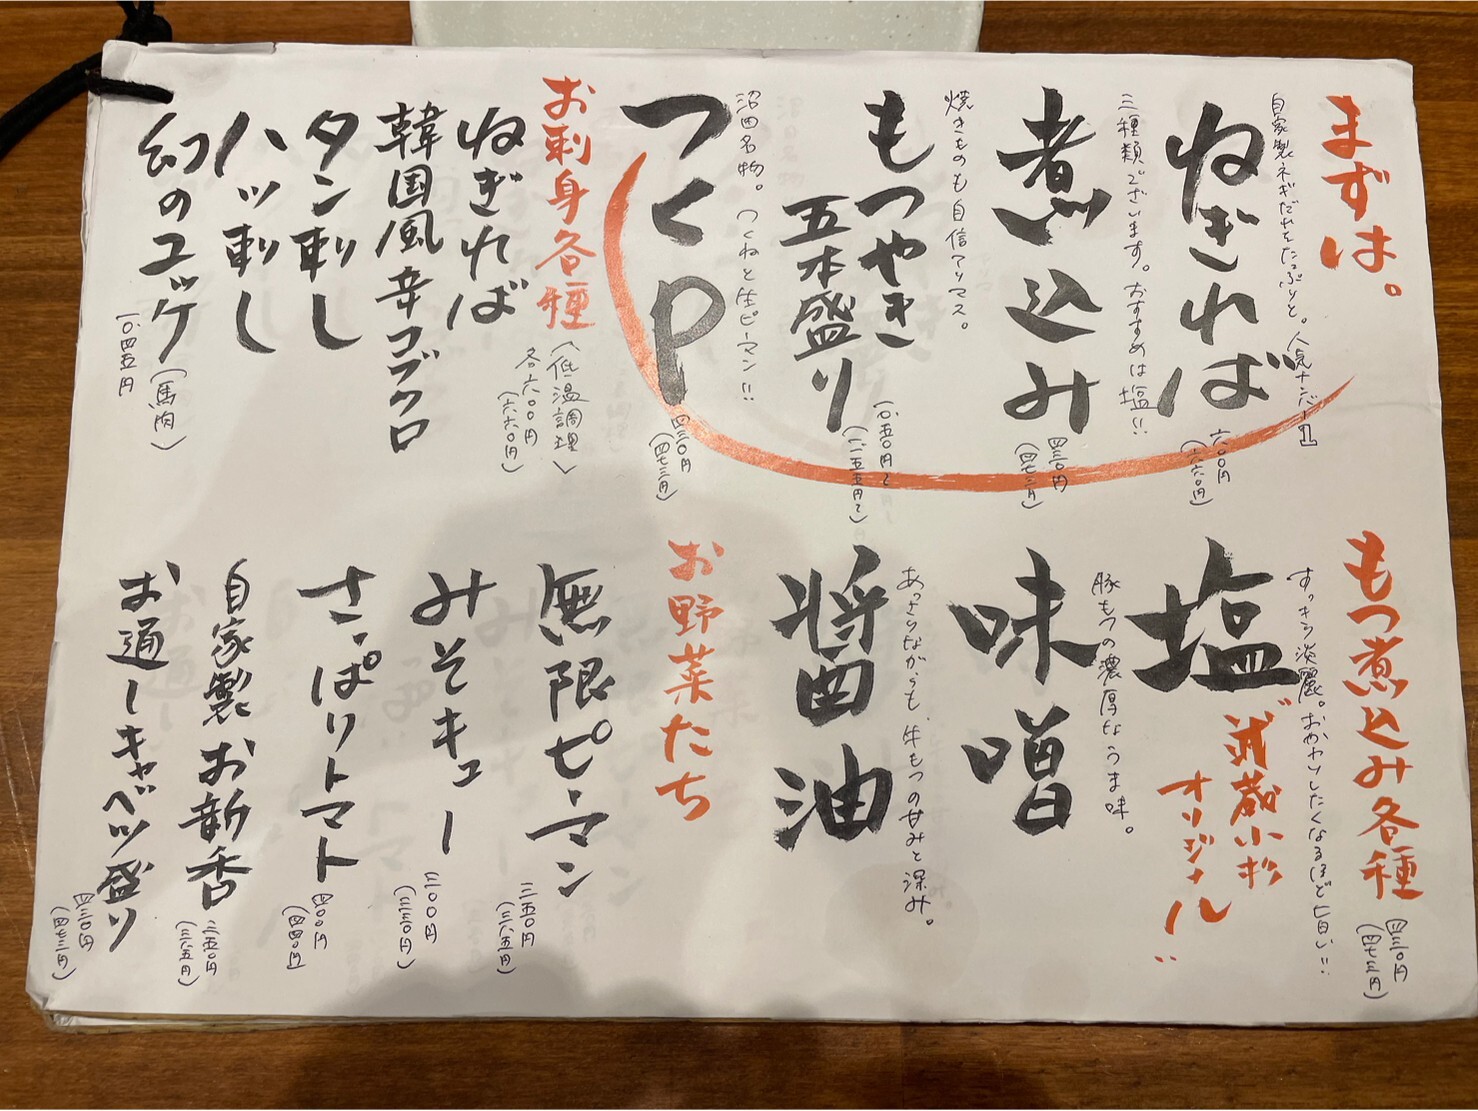 まずは。
自家製ネギだれをたっぷりと。人気ナンバー1
ねぎればー
六〇〇円
（六六〇円）
三種類ございます。おすすめは塩!!
煮込み
四三〇円
（四七三円）
焼きものも自信アリマス。
もつやき
五本盛り
一〇五〇円〜
（一一五五円〜）
沼田名物。つくねと生ピーマン!!
つくP
四三〇円
（四七三円）
お刺身各種
〈低温調理〉
各六〇〇円
（六六〇円）
ねぎれば
韓国風辛コブクロ
タン刺し
ハツ刺し
幻のユッケ（馬肉）
一〇四五円
もつ煮込み各種
四三〇円
（四七三円）
すっきり淡麗。おかわりしたくなるほど旨い!!
塩
武蔵小杉
オリジナル!!
豚もつの濃厚なうま味。
味噌
あっさりながらも、牛もつの甘みと深み。
醤油
お野菜たち
無限ピーマン
三五〇円
（三八五円）
みそキュー
三〇〇円
（三三〇円）
さっぱりトマト
四〇〇円
（四四〇円）
自家製お新香
三五〇円
（三八五円）
お通しキャベツ盛り
四三〇円
（四七三円）